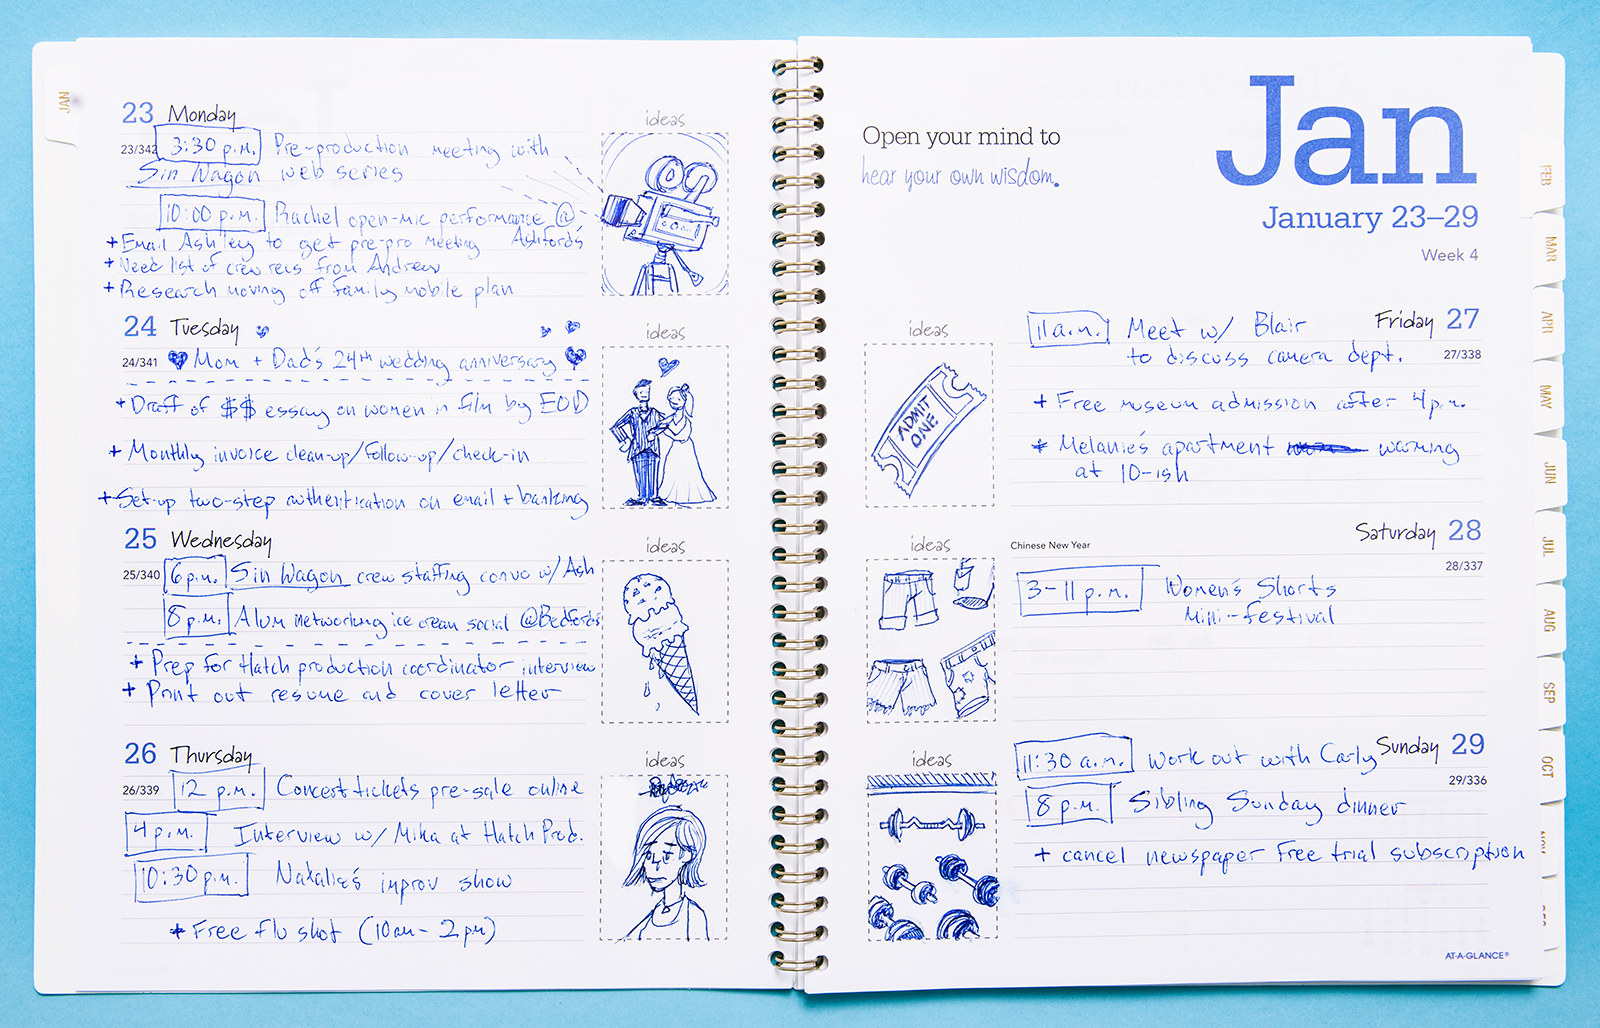 JAN
23 Monday
ideas
23/342
3:30 p.m. Pre-production meeting with
Sin Wagon web series
10:00 p.m. Rachel open-mic performance @
Ashford's
+ Email Ashley to get pre-pro meeting
+ Need list of crew recs from Andrew
+ Research moving off family mobile plan
24 Tuesday
ideas
24/341
Mom + Dad's 24th wedding anniversary
+ Draft of $$ essay on women in film by EOD
+ Monthly invoice clean-up/follow-up/check-in
+ Set-up two-step authentication on email + banking
25 Wednesday
ideas
25/340
6 p.m. Sin Wagon crew staffing convo w/ Ash
8 p.m. Alum networking ice cream social @Bedford's
+ Prep for Hatch production coordinator interview
+ Print out resume and cover letter
26 Thursday
ideas
26/339
12 p.m. Concert tickets pre-sale online
4 p.m. Interview w/ Mika at Hatch Prod.
10:30 p.m. Natalie's improv show
* Free flu shot (10am - 2pm)
Open your mind to
hear your own wisdom.
Jan
January 23–29
Week 4
ideas
Friday 27
27/338
11 a.m. Meet w/ Blair
to discuss camera dept.
+ Free museum admission after 4p.m.
* Melanie's apartment warming
at 10-ish
ADMIT
ONE
ideas
Chinese New Year
Saturday 28
28/337
3-11 p.m. Women's Shorts
Mini-festival
ideas
Sunday 29
29/336
11:30 a.m. Work out with Carly
8 p.m. Sibling Sunday dinner
+ cancel newspaper free trial subscription
AT-A-GLANCE®
FEB
MAR
APR
MAY
JUN
JUL
AUG
SEP
OCT
NOV
DEC